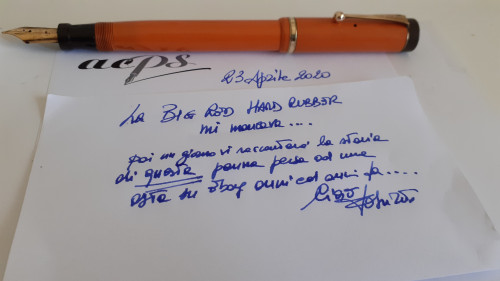 acps
23 Aprile 2020
La BIG RED HARD RUBBER
mi mancava....
Poi un giorno vi racconterò la storia
di questa penna presa ad una
asta su ebay anni ed anni fa.....